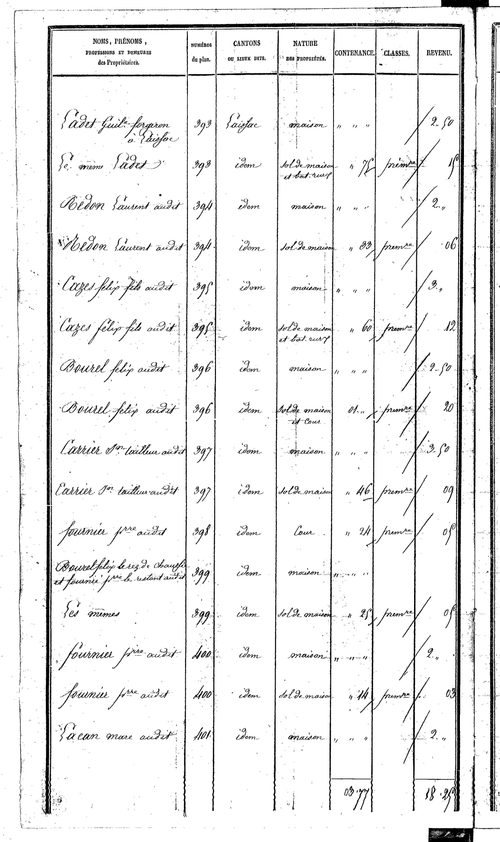 NOMS, PRÉNOMS, PROFESSIONS ET DEMEURES des Propriétaires. NUMÉROS du plan. CANTONS OU LIEUX DITS. NATURE DES PROPRIÉTÉS. CONTENANCE. CLASSES. REVENU.
Cadet Guil.e forgeron à Laissac 393 Laissac maison " " " 2-50
Le même Cadet 393 idem sol de maison et bat. rural " 75 prem.re 15
Redon Laurent audit 394 idem maison " " " 2 "
Redon Laurent audit 394 idem sol de maison " 33 prem.re 06
Cazes felix fils audit 395 idem maison " " " 3 "
Cazes felix fils audit 395 idem sol de maison et bat. rural " 60 prem.re 12
Bourel felix audit 396 idem maison " " " 2-50
Bourel felix audit 396 idem sol de maison et Cour 01 " prem.re 20
Carrier tailleur audit 397 idem maison " " " 3-50
Carrier tailleur audit 397 idem sol de maison " 46 prem.re 09
fournier p.rre audit 398 idem Cour " 24 prem.re 05
Bourel felix le rez de chaussée
et fournié p.rre le restant audit 399 idem maison " " "
Les mêmes 399 idem sol de maison " 25 prem.re 05
fournier p.rre audit 400 idem maison " " " 2 "
fournier p.rre audit 400 idem sol de maison " 14 prem.re 03
Lacan marc audit 401 idem maison " " " 2 "
03-77 18-25